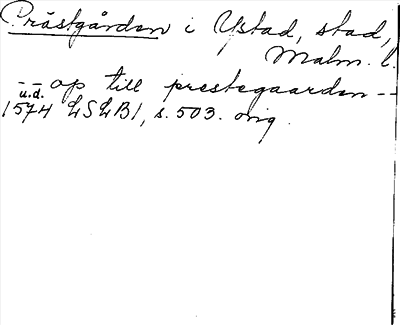 Prästgården i Ystad, stad,
Malm. l.
-- op till prestegaarden --
u.d.
1574 LSLB1, s. 503. orig.